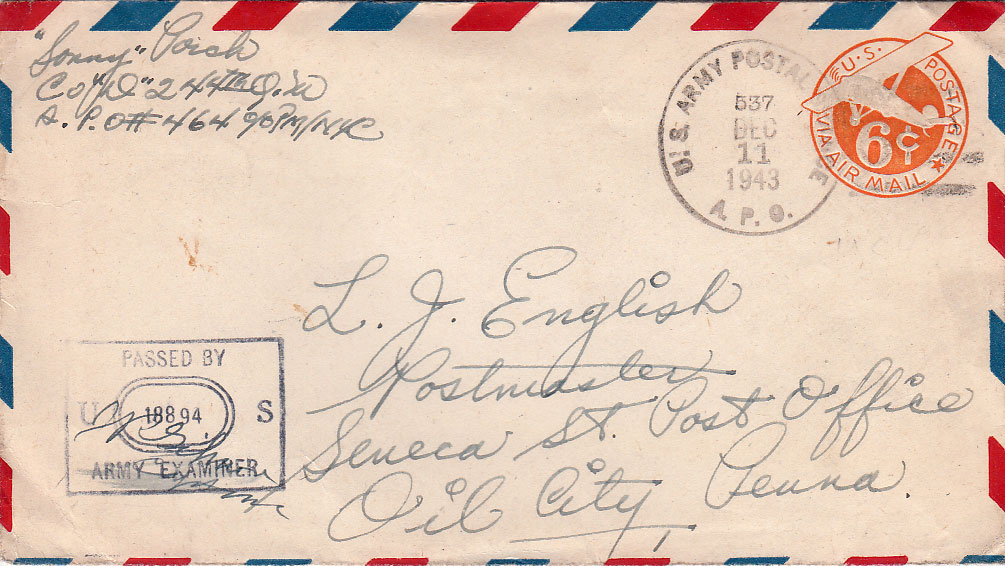 "Sonny" Porch
Co "D" 244th Q.M
A.P.O # 464 % PM/NYC
U.S. ARMY POSTAL
537
DEC
11
1943
A.P.O.
U.S. POSTAGE
6¢
VIA AIR MAIL
L. J. English
Postmaster
Seneca St. Post Office
Oil City, Penna.
PASSED BY
U 18894 S
ARMY EXAMINER